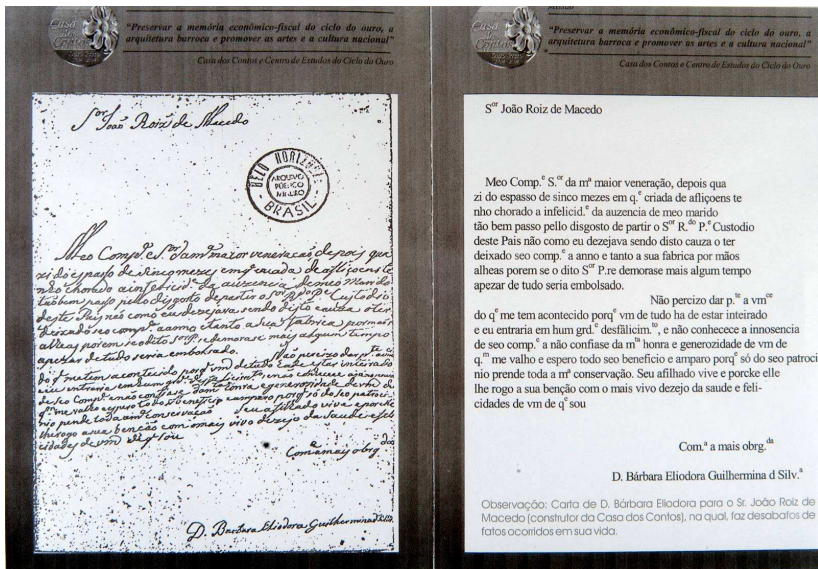 "Preservar a memória econômico-fiscal do ciclo do ouro, a
arquitetura barroca e promover as artes e a cultura nacional"
Casa dos Contos e Centro de Estudos do Ciclo do Ouro
Casa
dos
Contos
S.or João Roiz de Macedo
BELO HORIZONTE
ARQUIVO
PÚBLICO
MINEIRO
- BRASIL -
Meo Comp.e S.or da mª maior veneração depois qua
zi do espasso de sinco mezes em q.e criada de afliçoens te
nho chorado a infelicid.e da auzencia de meo marido
tão bem passo pello disgosto de partir o S.or R.do P.e Custodio
deste Pais não como eu dezejava sendo disto cauza o ter
deixado seo comp.e a anno e tanto a sua fabrica por mãos
alheas porem se o dito S.or P.e demorase mais algum tempo
apezar de tudo seria embolsado. Não percizo dar p.te a vm.ce
do q.e me tem acontecido porq.e vm de tudo ha de estar inteirado
e eu entraria em hum grd.e desfalicim.to, e não conhecece a innosencia
de seo comp.e a não confiase da m.ta honra e generozidade de vm de
q.m me valho e espero todo seo beneficio e amparo porq.e só do seo patroci
nio pende toda a mª conservação Seu afilhado vive e porcke elle
lhe rogo a sua benção com o mais vivo dezejo da saude e feli
cidades de vm de q.e sou
Com.a a mais obrg.da
D. Barbara Eliodora Guilhermina d Silv.a
"Preservar a memória econômico-fiscal do ciclo do ouro, a
arquitetura barroca e promover as artes e a cultura nacional"
Casa dos Contos e Centro de Estudos do Ciclo do Ouro
Casa
dos
Contos
S.or João Roiz de Macedo
Meo Comp.e S.or da mª maior veneração, depois qua
zi do espasso de sinco mezes em q.e criada de afliçoens te
nho chorado a infelicid.e da auzencia de meo marido
tão bem passo pello disgosto de partir o S.or R.do P.e Custodio
deste Pais não como eu dezejava sendo disto cauza o ter
deixado seo comp.e a anno e tanto a sua fabrica por mãos
alheas porem se o dito S.or P.re demorase mais algum tempo
apezar de tudo seria embolsado.
Não percizo dar p.te a vm.ce
do q.e me tem acontecido porq.e vm de tudo ha de estar inteirado
e eu entraria em hum grd.e desfãlicim.to, e não conhecece a innosencia
de seo comp.e a não confiase da m.ta honra e generozidade de vm de
q.m me valho e espero todo seo beneficio e amparo porq.e só do seo patroci
nio prende toda a mª conservação. Seu afilhado vive e porcke elle
lhe rogo a sua benção com o mais vivo dezejo da saude e feli-
cidades de vm de q.e sou
Com.a a mais obrg.da
D. Bárbara Eliodora Guilhermina d Silv.a
Observação: Carta de D. Bárbara Eliodora para o Sr. João Roiz de
Macedo (construtor da Casa dos Contos), na qual, faz desabafos de
fatos ocorridos em sua vida.